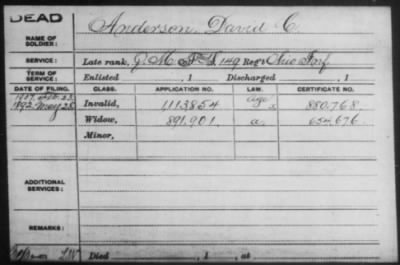 DEAD
NAME OF SOLDIER: Anderson, David C.
SERVICE: Late rank, Q. M. 149 Reg't Ohio Inf.
TERM OF SERVICE: Enlisted , 1 Discharged , 1
DATE OF FILING. CLASS. APPLICATION NO. LAW. CERTIFICATE NO.
1892 May 28 Invalid, 1,113,854 age 880,768
Widow, 891,901 a. 654,676
Minor,
ADDITIONAL SERVICES:
REMARKS:
Died , 1 , at